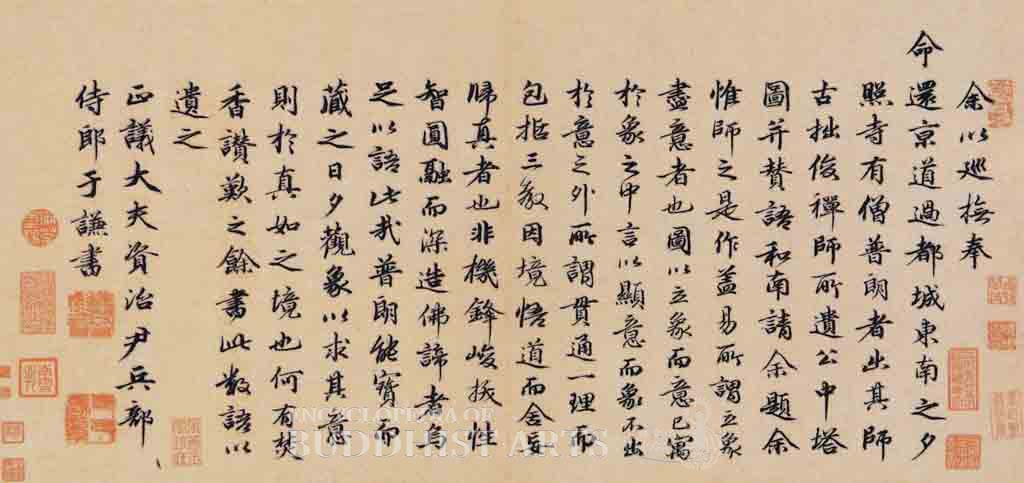 余以巡撫奉
命還京道過都城東南之夕
照寺有僧普朗者出其師
古拙俊禪師所遺公中塔
圖并贊語和南請余題余
惟師之是作蓋易所謂立象
盡意者也圖以立象而意已寓
於象之中言以顯意而象不出
於意之外所謂貫通一理而
包括三教因境悟道而舍妄
歸真者也非機鋒峻拔性
智圓融而深造佛諦者烏
足以語此哉普朗能寶而
藏之日夕觀象以求其意
則於真如之境也何有焚
香讚歎之餘書此數語以
遺之
正議大夫資治尹兵部
侍郎于謙書
ENCYCLOPEDIA OF
BUDDHIST ARTS